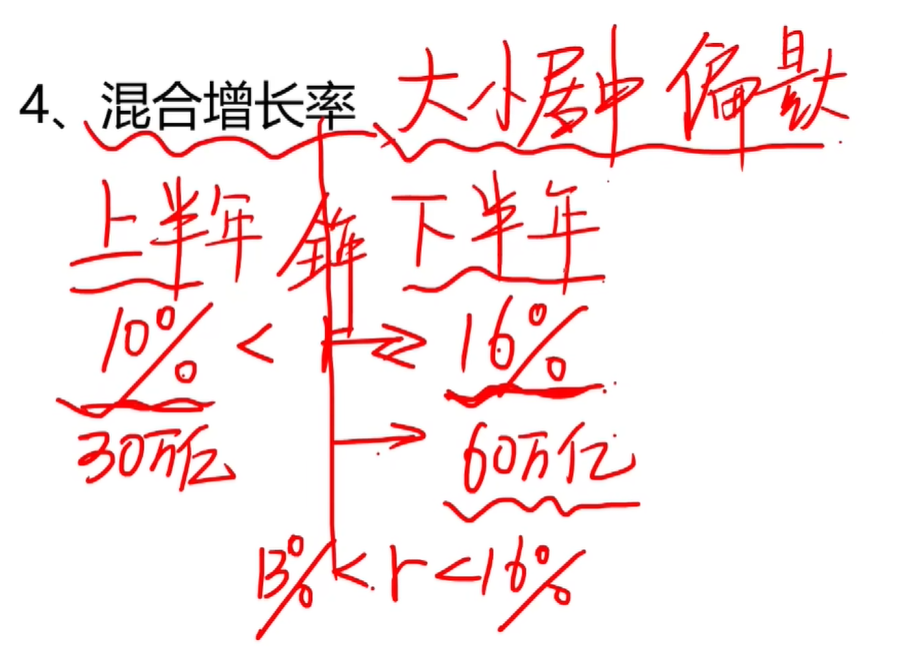 4、混合增长率 大小居中 偏量大
上半年 全年 下半年
10% < r 16%
30万亿 60万亿
13% < r < 16%